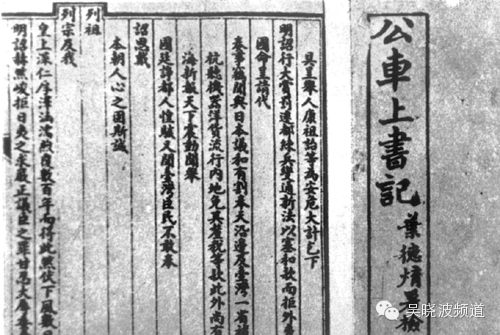 公車上書記
葉德
具呈舉人康祖詒等為安危大計乞下
明詔行大賞罰遷都練兵變通新法以塞和款而拒外
國命呈請代
奏事竊聞與日本議和有割奉天沿邊及臺灣一省
杭聽機器洋貨流行內地免其釐稅等款此外尚有
海新報天下震動聞舉
國廷諍都人惶駭又聞臺灣臣民不敢奉
詔思戴
本朝人心之固斯誠
列祖
列宗及我
皇上深仁厚澤涵濡煦育數百年而得此然伏下風數
明詔赫然峻拒日夷之求嚴正議臣之罪甘忍大辱
吴晓波频道